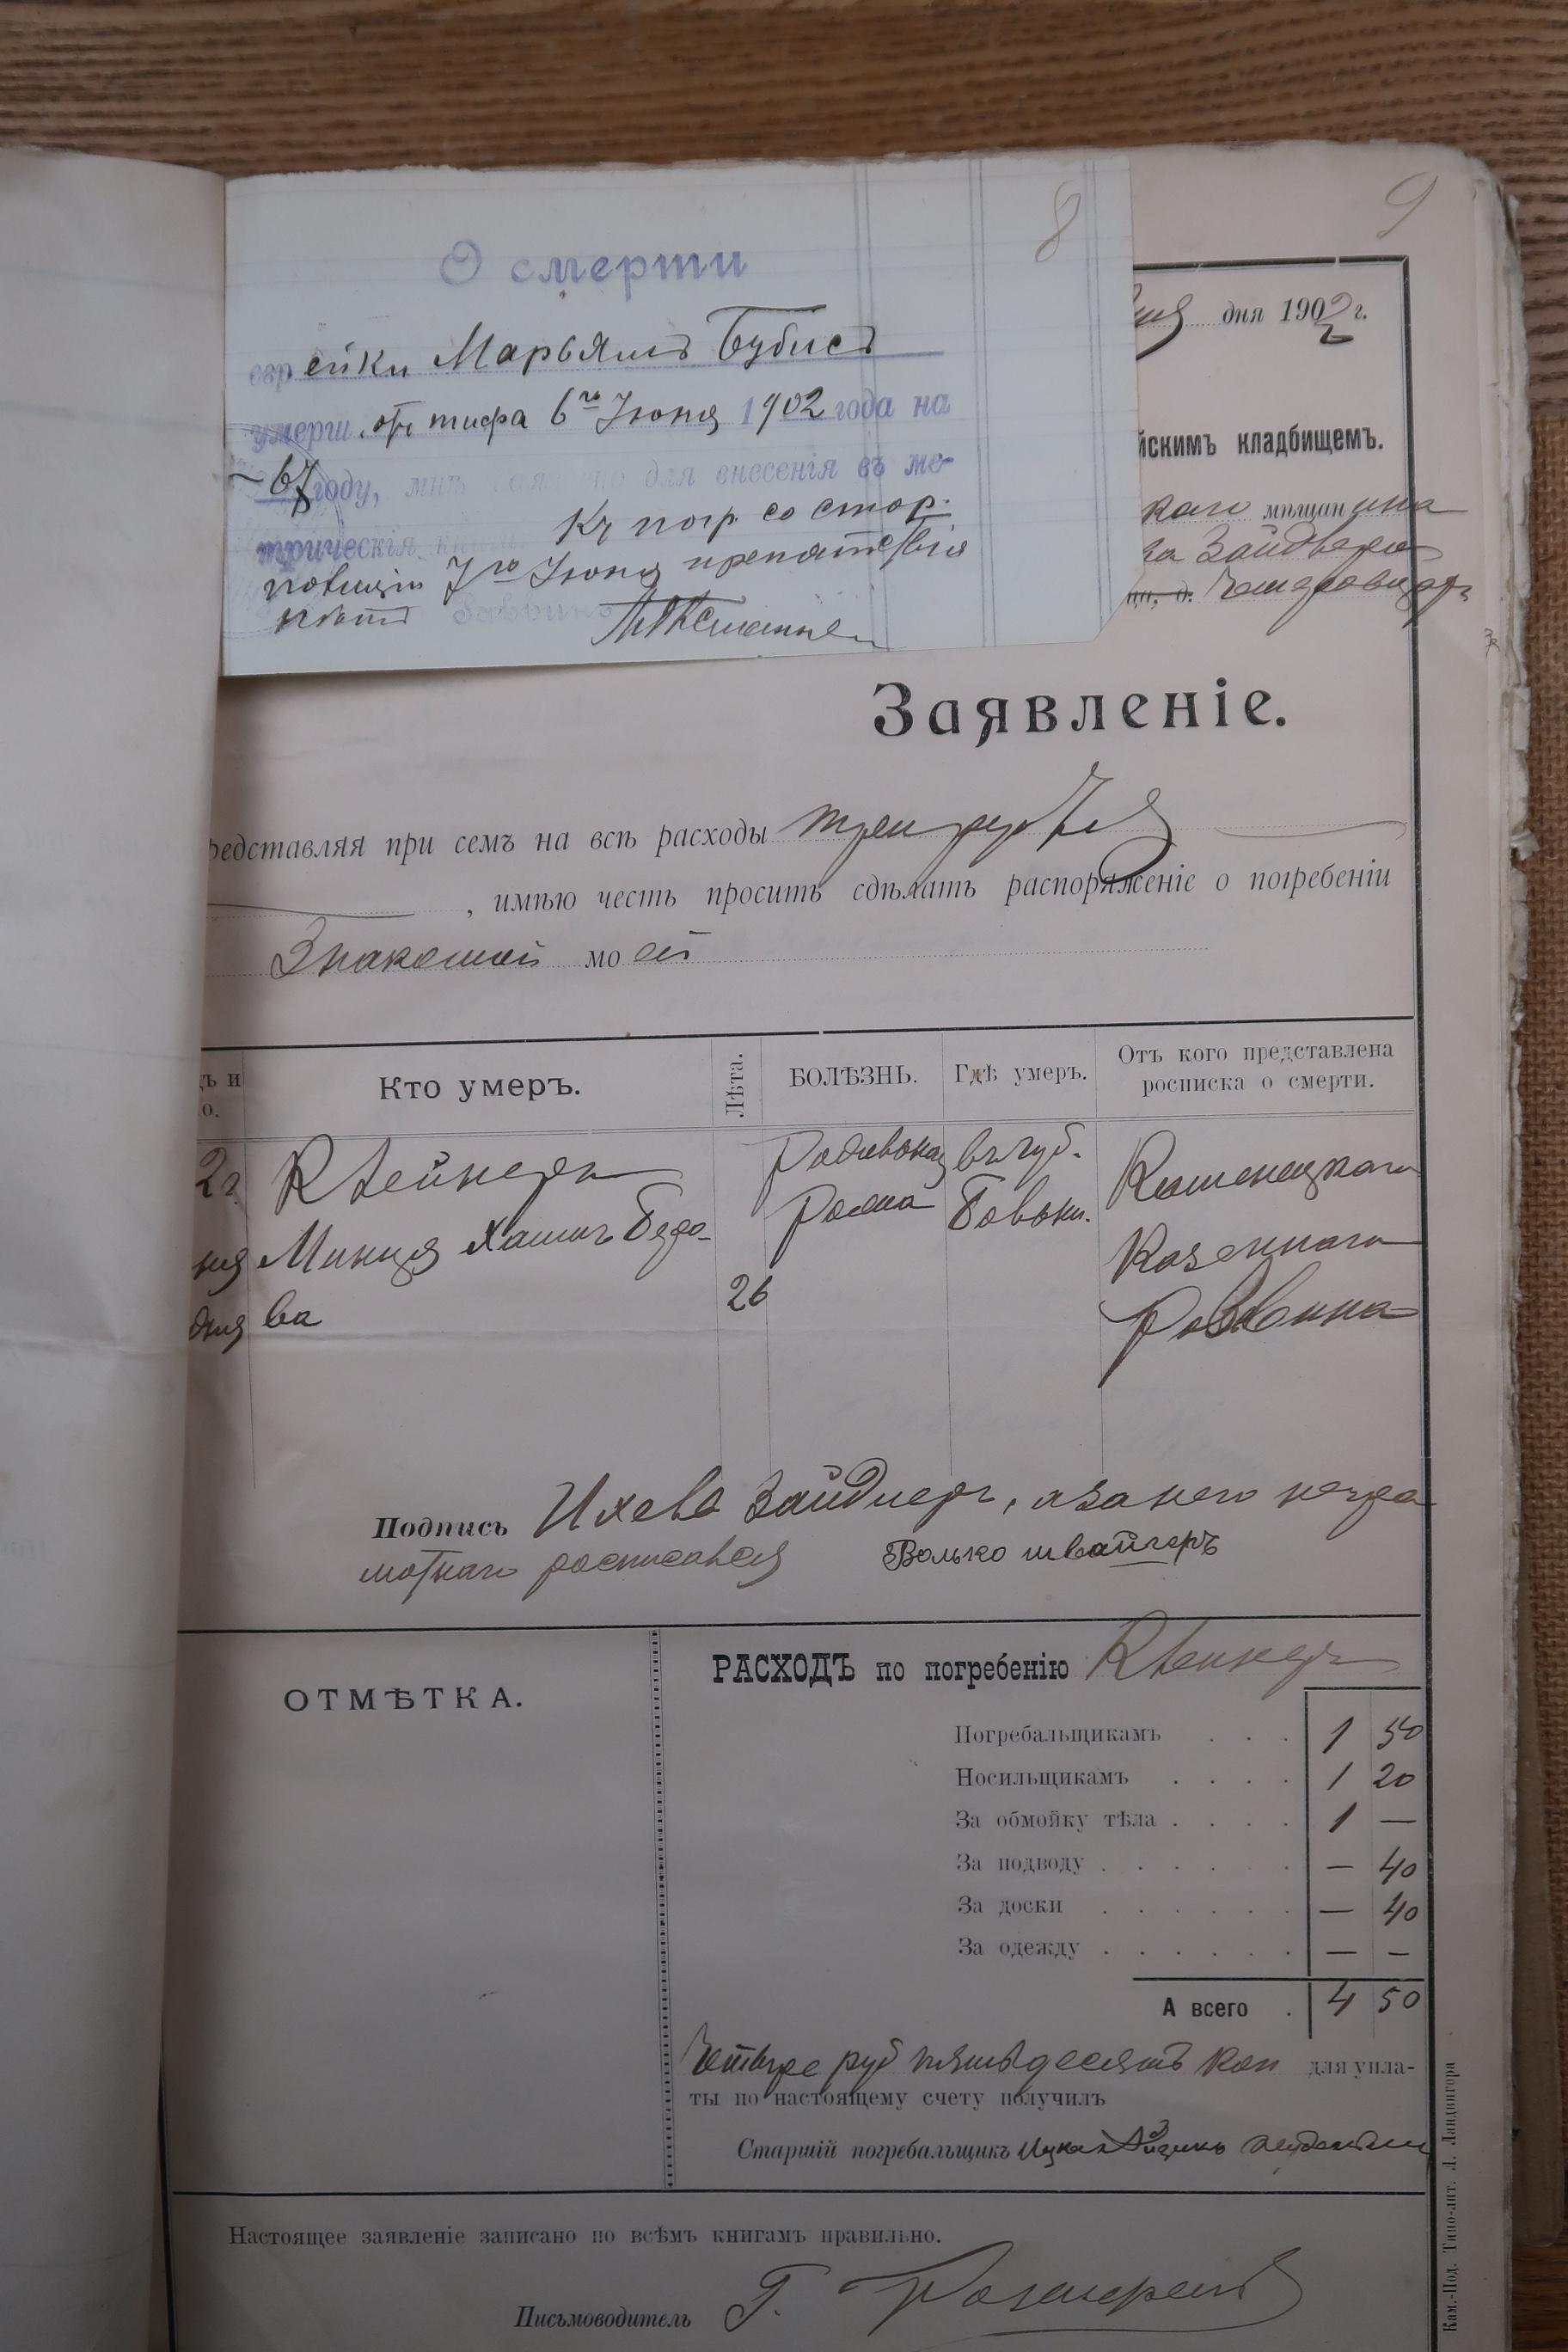 8
9
О смерти
еврейки Марьямъ Бубисъ
умерш. отъ тифа 6го Іюня 1902 года на
67 году, мнѣ заявлено для внесенія въ ме-
трическія книги. Къ погр. со стор.
повиціи 7го Іюня препятствія
нѣтъ
дня 1902 г.
йскимъ кладбищемъ.
каго мѣщанина
Зайднера
Заявленіе.
редставляя при семъ на всѣ расходы три рубля
, имѣю честь просить сдѣлать распоряженіе о погребеніи
Знакомой моей
ъ и
о.
Кто умеръ.
Лѣта.
БОЛѢЗНЬ.
Гдѣ умеръ.
Отъ кого представлена
росписка о смерти.
2 г.
ня
дня
Клейнеръ
Минця Хаимъ Бедо-
ва
26
Родильная
въ губ.
Больн.
Каменецкаго
Казеннаго
Раввина
Подпись Ихелъ Зайднеръ, а за него негра-
мотнаго росписался Волько Швайгеръ
ОТМѢТКА.
РАСХОДЪ по погребенію Клейнеръ
Погребальщикамъ . . . 1 50
Носильщикамъ . . . . 1 20
За обмойку тѣла . . . . 1 —
За подводу . . . . . . — 40
За доски . . . . . . — 40
За одежду . . . . . . — —
А всего . 4 50
Четыре руб пятьдесятъ коп для упла-
ты по настоящему счету получилъ
Старшій погребальщикъ
Настоящее заявленіе записано по всѣмъ книгамъ правильно.
Письмоводитель Г.
Кам.-Под. Типо-лит. Л. Ландвигера